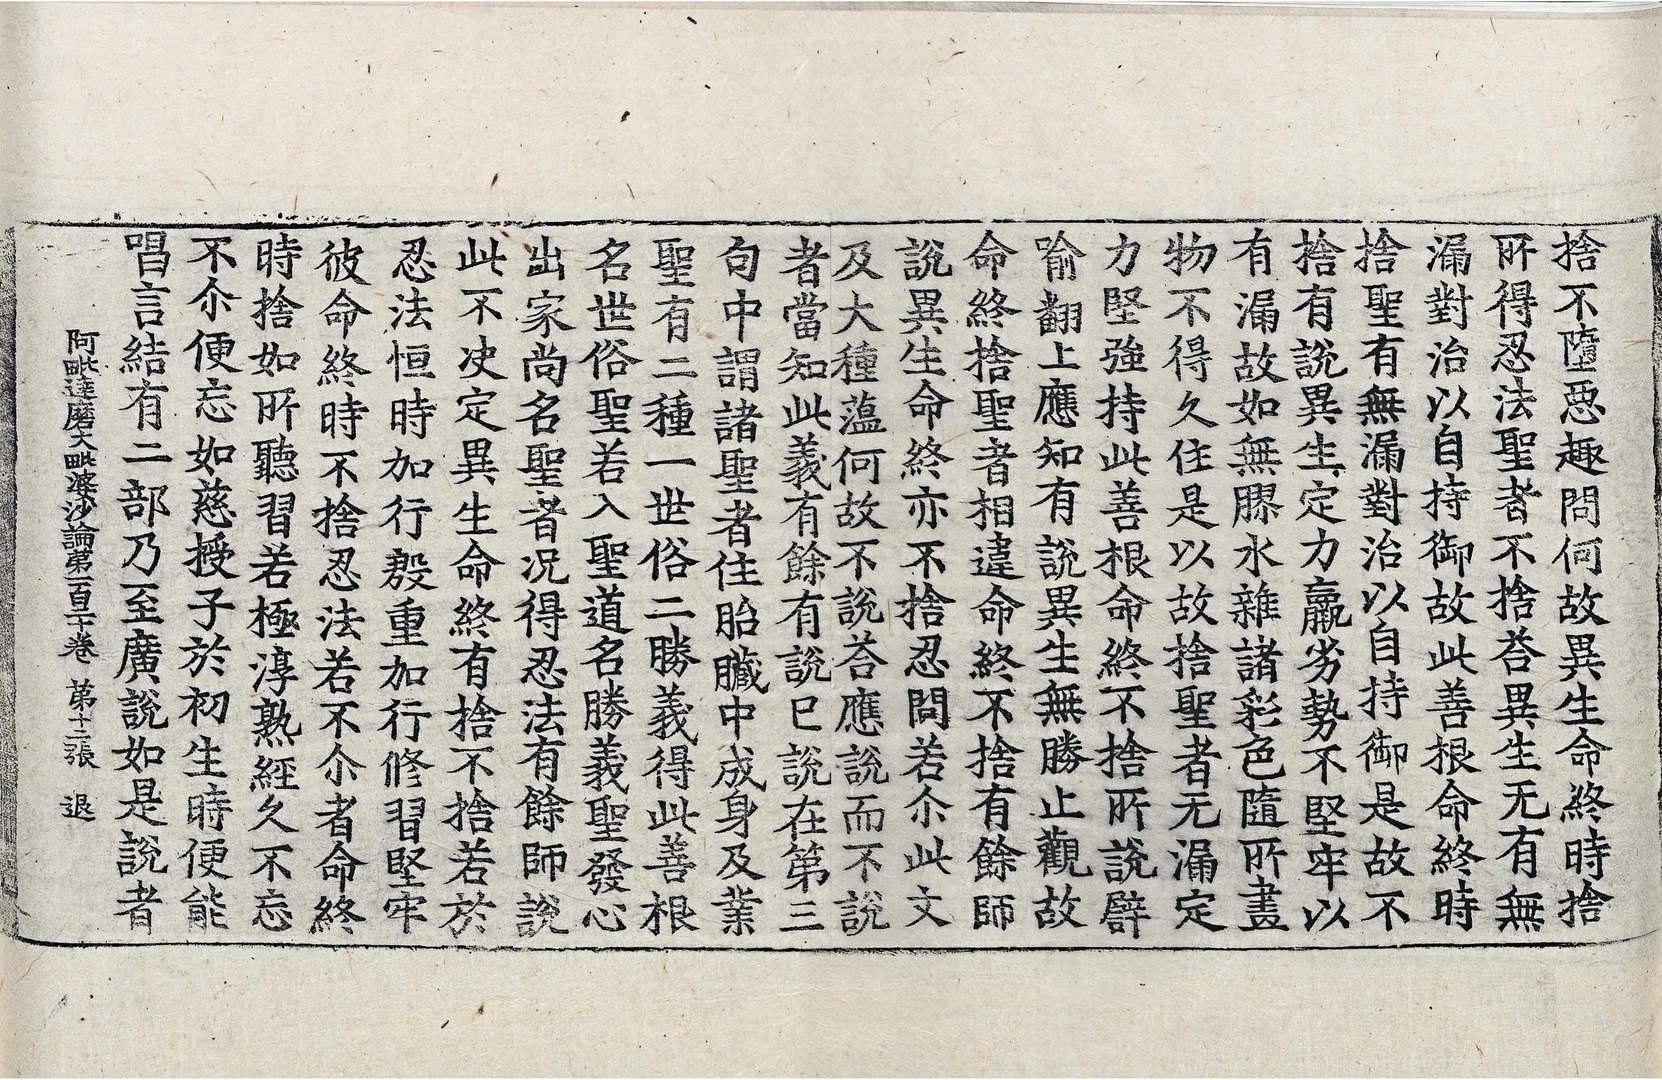 捨不墮惡趣問何故異生命終時捨
所得忍法聖者不捨荅異生无有無
漏對治以自持御故此善根命終時
捨聖有無漏對治以自持御是故不
捨有說異生定力羸劣勢不堅牢以
有漏故如無膠水雜諸彩色隨所畫
物不得久住是以故捨聖者无漏定
力堅強持此善根命終不捨所說譬
喻翻上應知有說異生無勝止觀故
命終捨聖者相違命終不捨有餘師
說異生命終亦不捨忍問若尒此文
及大種蘊何故不說荅應說而不說
者當知此義有餘有說巳說在第三
句中謂諸聖者住胎臟中成身及業
聖有二種一世俗二勝義得此善根
名世俗聖若入聖道名勝義聖發心
出家尚名聖者况得忍法有餘師說
此不决定異生命終有捨不捨若於
忍法恒時加行慇重加行修習堅牢
彼命終時不捨忍法若不尒者命終
時捨如所聽習若極淳熟經久不忘
不尒便忘如慈授子於初生時便能
唱言結有二部乃至廣說如是說者
阿毗達磨大毗婆沙論第一百二十卷　第十二張　退